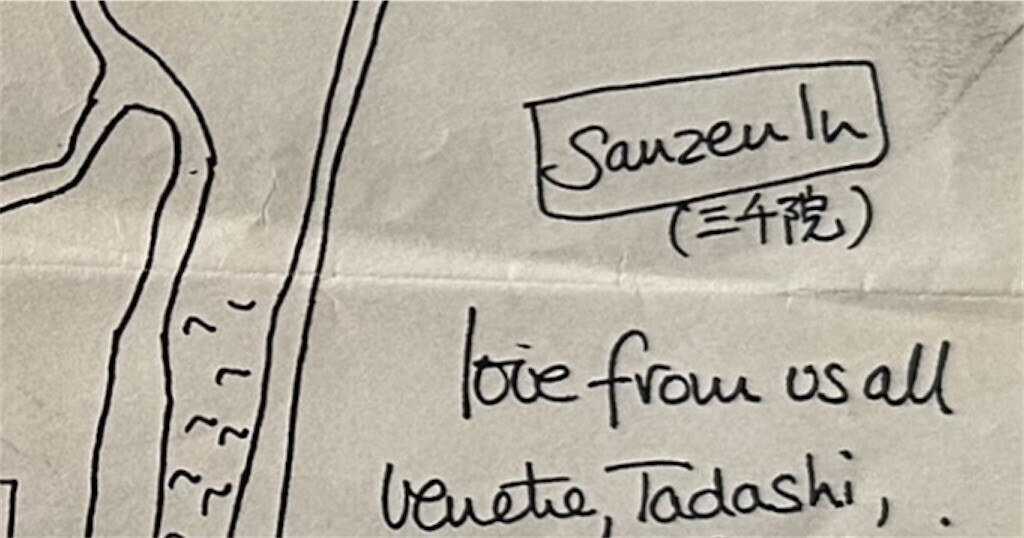 Sanzen In
(三千院)
love from us all
Venetia, Tadashi, .